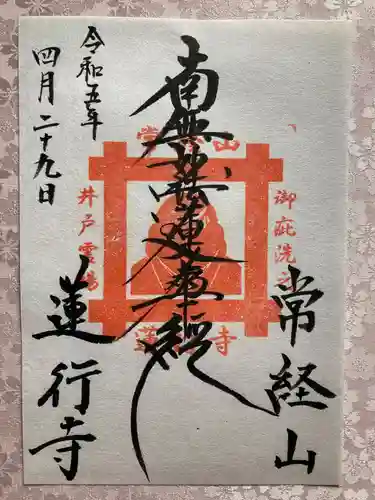 常経山
御疵洗之
南無妙法蓮華経
井戸霊場
令和五年
四月二十九日
蓮行寺